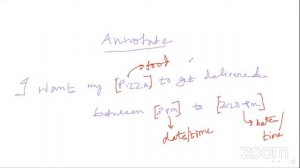 Annotate
food
I want my [Pizza] to get delivered
between [8pm] to [
date/time
time
zoom